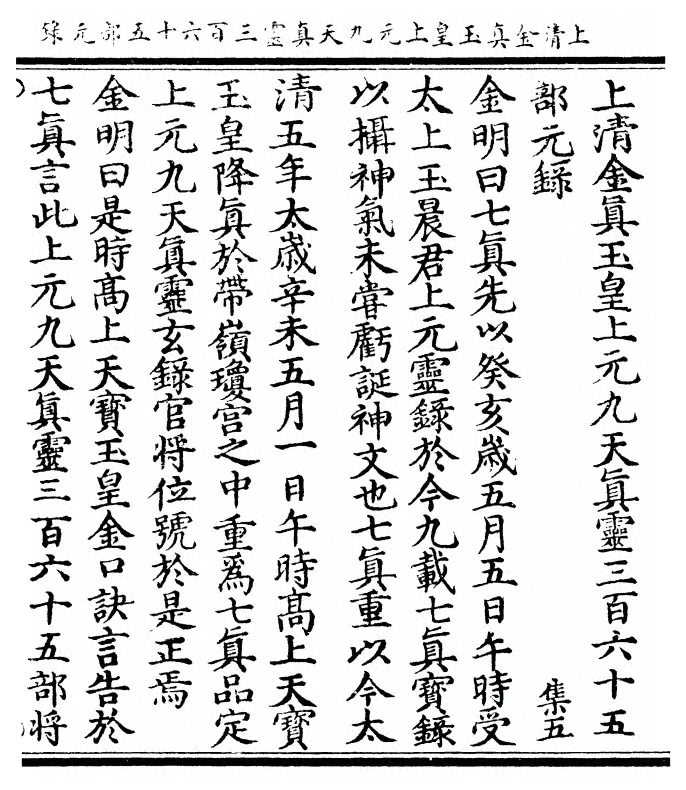 上清金真玉皇上元九天真靈三百六十五部元錄
上清金眞玉皇上元九天眞靈三百六十五
部元錄　集五
金明曰七眞先以癸亥歲五月五日午時受
太上玉晨君上元靈錄於今九載七眞寶錄
以攝神氣未嘗虧誕神文也七眞重以今太
清五年太歲辛未五月一日午時高上天寶
玉皇降眞於帶嶺瓊宮之中重爲七眞品定
上元九天眞靈玄錄官将位號於是正焉
金明曰是時高上天寶玉皇金口訣言告於
七眞言此上元九天眞靈三百六十五部将